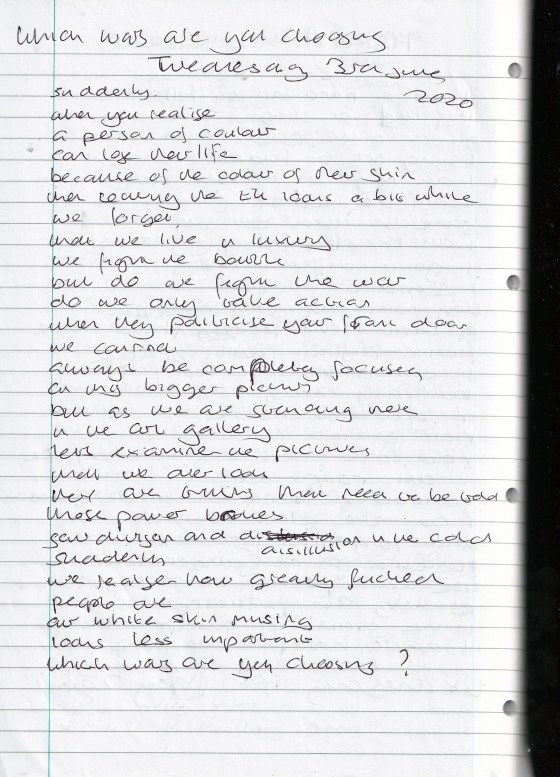 which wars are you choosing
Wednesday 3rd June
2020
suddenly
when you realise
a person of colour
can lose their life
because of the colour of their skin
then leaving the EU looks a bit white
we forget
that we live in luxury
we fight the battle
but do we fight the war
do we only take action
when they politicise your front door
we cannot
always be completely focused
on this bigger picture
but as we are standing here
in the art gallery
lets examine the pictures
that we over look
there are truths that need to be told
those power
sew division and disillusion in the cold
suddenly
we realise how greatly fucked
people are
our white skin musing
looks less important
which wars are you choosing ?